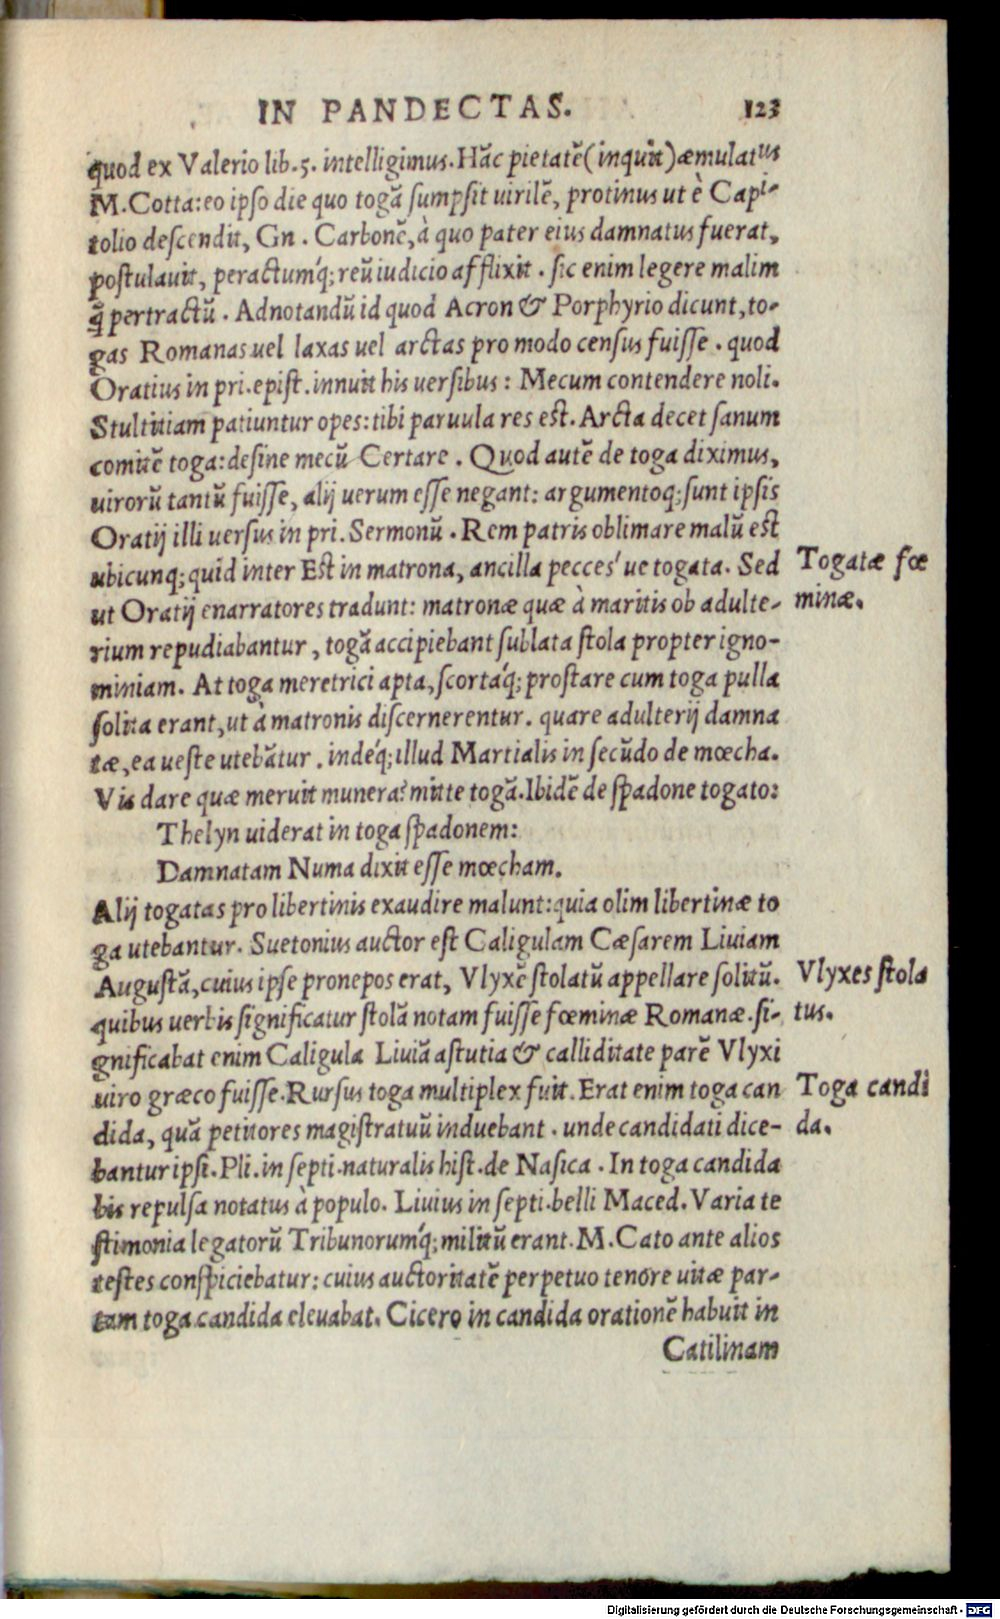 IN PANDECTAS. 123
quod ex Valerio lib. 5. intelligimus. Hãc pietatẽ (inquit) æmulatus
M. Cotta: eo ipso die quo togã sumpsit uirilẽ, protinus ut è Capi-
tolio descendit, Gn. Carbonẽ, à quo pater eius damnatus fuerat,
postulauit, peractumq́; reũ iudicio afflixit. sic enim legere malim
q̃ pertractũ. Adnotandũ id quod Acron & Porphyrio dicunt, to-
gas Romanas uel laxas uel arctas pro modo census fuisse. quod
Oratius in pri. epist. innuit his uersibus: Mecum contendere noli.
Stultitiam patiuntur opes: tibi paruula res est. Arcta decet sanum
comitẽ toga: desine mecũ Certare. Quod autẽ de toga diximus,
uirorũ tantũ fuisse, alij uerum esse negant: argumentoq; sunt ipsis
Oratij illi uersus in pri. Sermonũ. Rem patris oblimare malũ est
ubicunq; quid inter Est in matrona, ancilla pecces' ue togata. Sed
Togatæ fœ
ut Oratij enarratores tradunt: matronæ quæ à maritis ob adulte-
minæ.
rium repudiabantur, togã accipiebant sublata stola propter igno-
miniam. At toga meretrici apta, scortaq́; prostare cum toga pulla
solita erant, ut à matronis discernerentur. quare adulterij damna
tæ, ea ueste utebãtur. indeq́; illud Martialis in secũdo de mœcha.
Vis dare quæ meruit munera? mitte togã. Ibidẽ de spadone togato:
Thelyn uiderat in toga spadonem:
Damnatam Numa dixit esse mœcham.
Alij togatas pro libertinis exaudire malunt: quia olim libertinæ to
ga utebantur. Suetonius auctor est Caligulam Cæsarem Liuiam
Augustã, cuius ipse pronepos erat, Vlyxẽ stolatũ appellare solitũ.
Vlyxes stola
quibus uerbis significatur stolã notam fuisse fœminæ Romanæ. si-
tus.
gnificabat enim Caligula Liuiã astutia & calliditate parẽ Vlyxi
uiro græco fuisse. Rursus toga multiplex fuit. Erat enim toga can
Toga candi
dida, quã petitores magistratuũ induebant. unde candidati dice-
da.
bantur ipsi. Pli. in septi. naturalis hist. de Nasica. In toga candida
bis repulsa notatus à populo. Liuius in septi. belli Maced. Varia te
stimonia legatorũ Tribunorumq́; militũ erant. M. Cato ante alios
testes conspiciebatur: cuius auctoritatẽ perpetuo tenore uitæ par-
tam toga candida eleuabat. Cicero in candida orationẽ habuit in
Catilinam
Digitalisierung gefördert durch die Deutsche Forschungsgemeinschaft - DFG